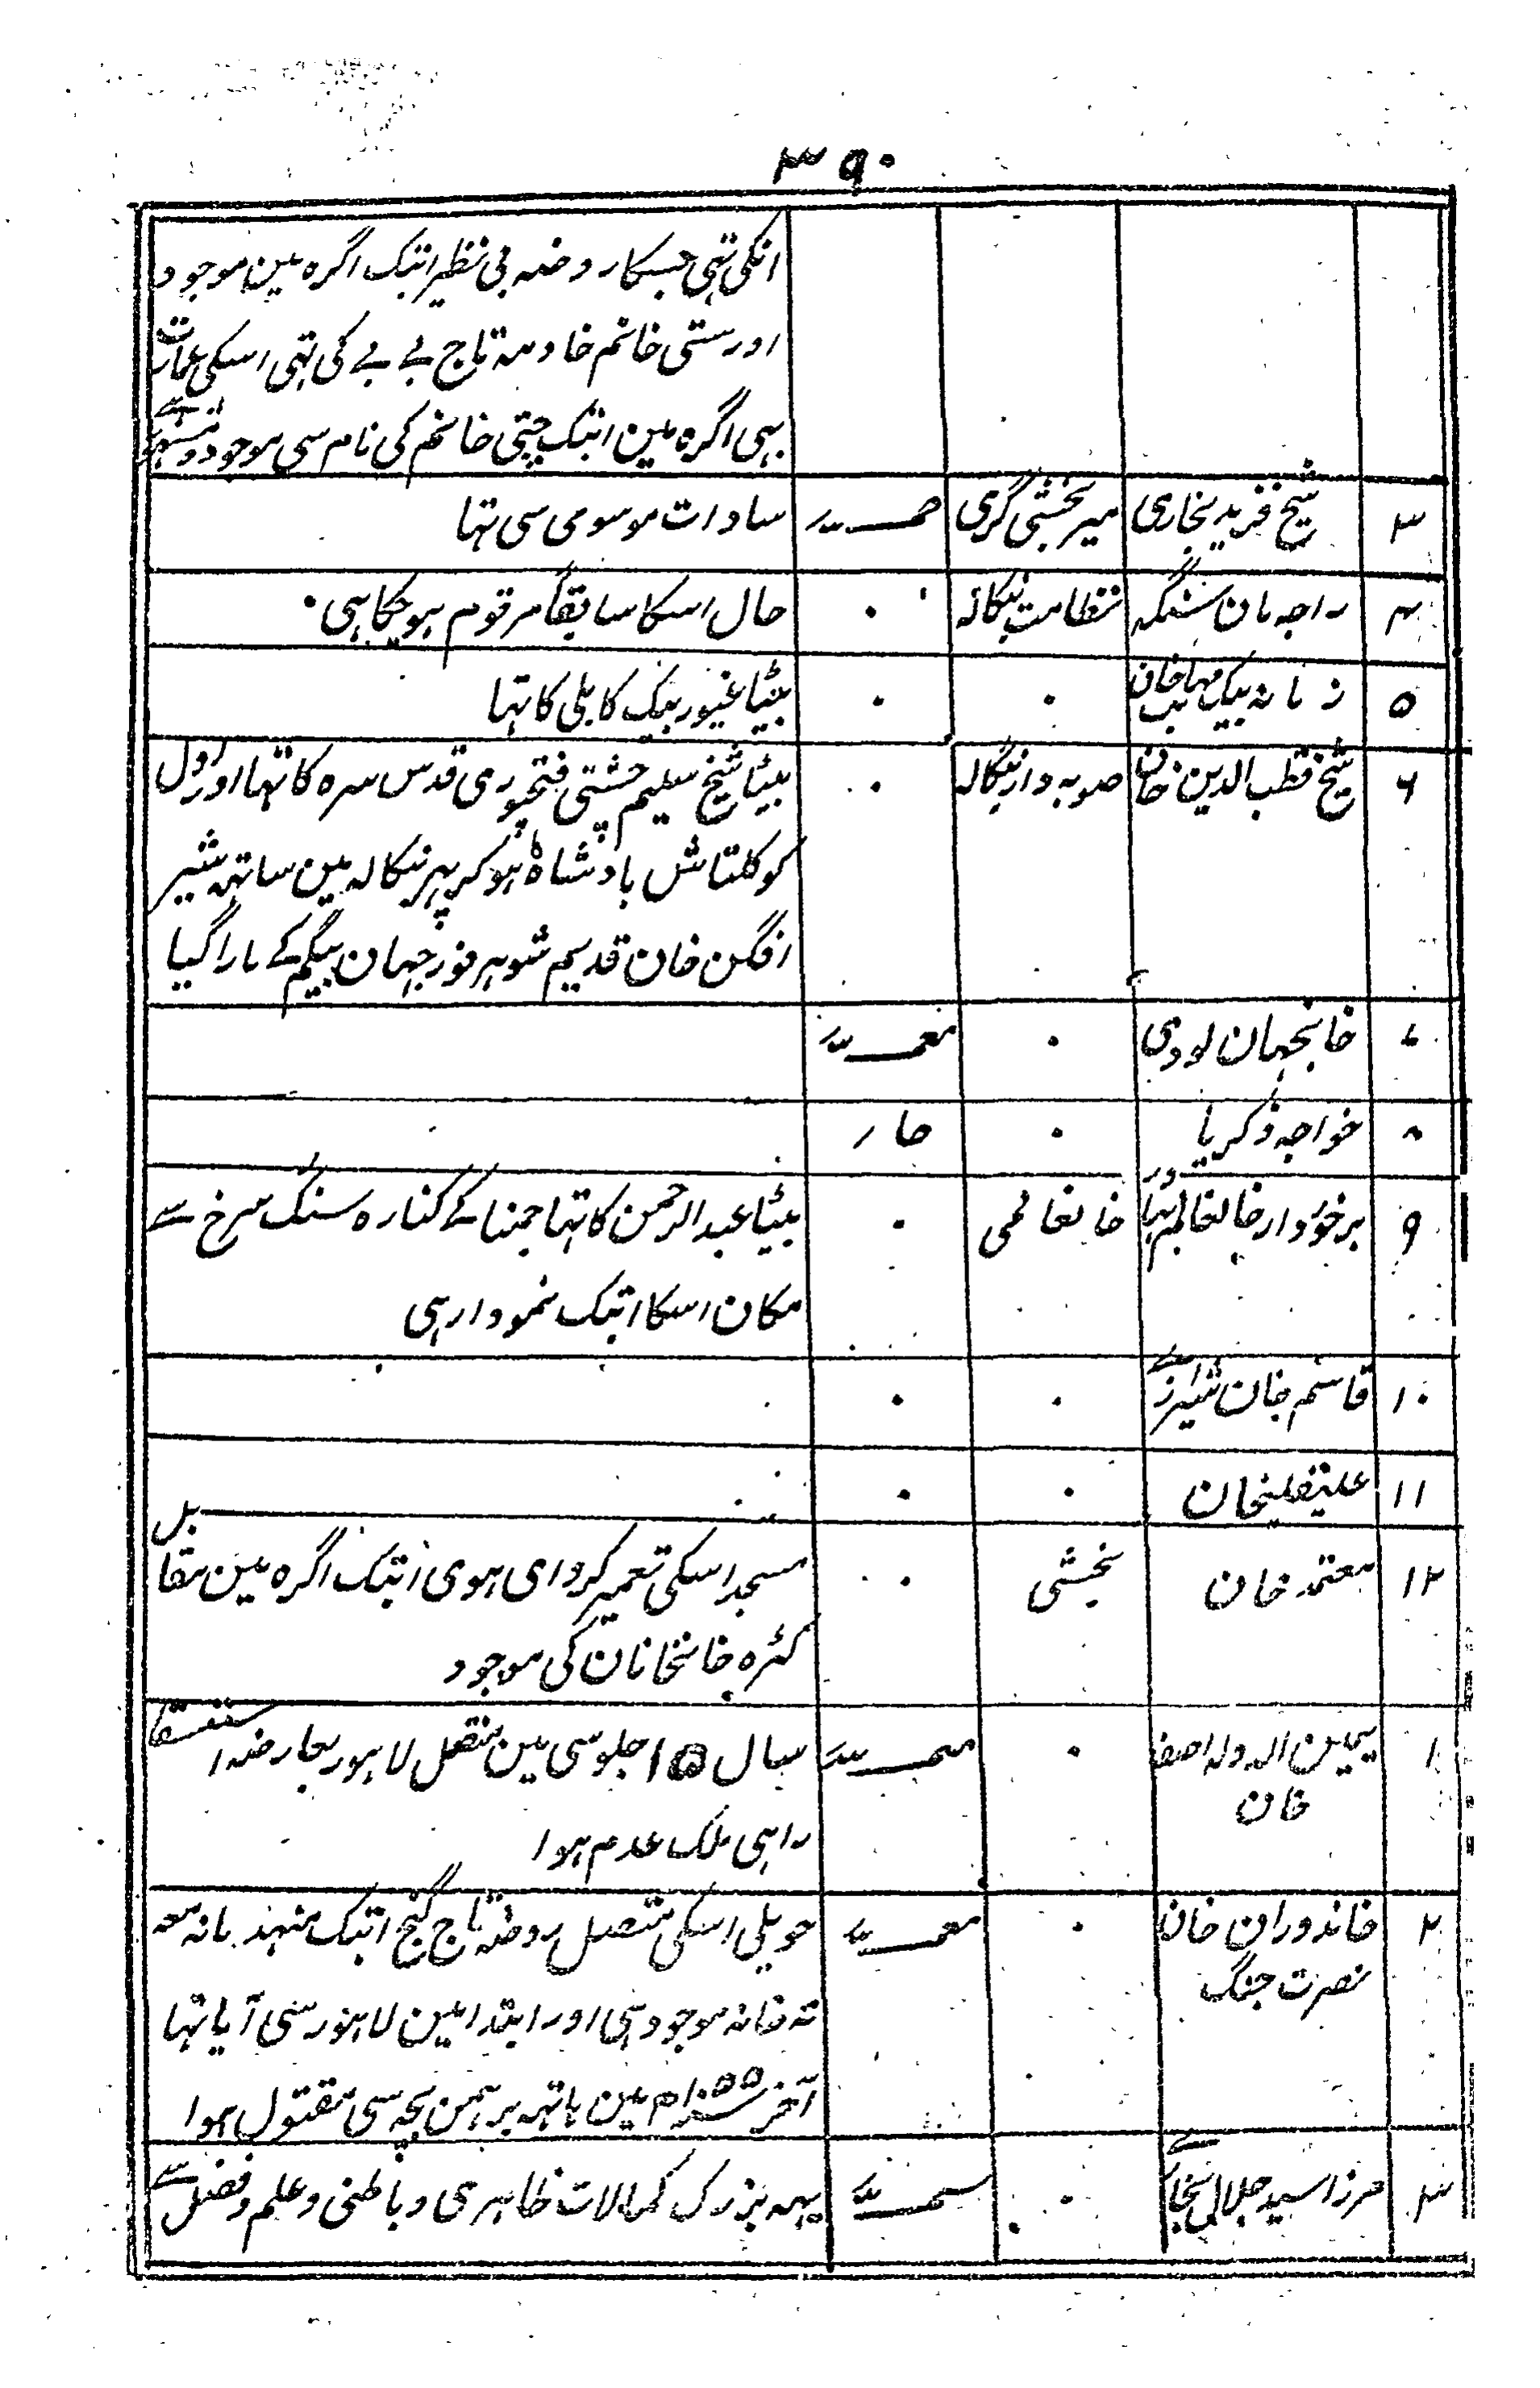 ۳۹۰
انکی تہی جسکا روضہ بی نظیر ابتک اگرہ مین موجود
اور ستی خانم خادمہ تاج بے بے کی تہی اسکی عمارت
بہی اگرہ مین ابتک چتی خانم کی نام سی موجود و مشہور ہے
۳ شیخ فرید بخاری میر بخشی گری سادات موسومی سی تہا
۴ راجہ مان سنگہ نظامت بنگالہ ۰ حال اسکا سابقاً مرقوم ہوچکا ہی۔
۵ زمانہ بیک مہابت خان ۰ ۰ بیٹا غیور بیک کابلی کا تہا
۶ شیخ قطب الدین خان صوبہ دار بنگالہ ۰ بیٹا شیخ سلیم چشتی فتحپوری قدس سرہ کا تہا اور اول
کوکلتاش بادشاہ ہوکر پہر بنگالہ مین ساتہہ شیر
افگن خان قدیم شوہر نورجہان بیگم کے مارا گیا
۷ خانجہان لودی ۰
۸ خواجہ ذکریا ۰
۹ برخوردار خانعالم بہادر خانعالمی ۰ بیٹا عبدالرحمن کا تہا جمنا کے کنارہ سنگ سرخ سے
مکان اسکا ابتک نمودار ہی
۱۰ قاسم خان شیرازے ۰ ۰
۱۱ علیقلیخان ۰ ۰
۱۲ معتمد خان بخشی ۰ مسجد اسکی تعمیر کروای ہوی ابتک اگرہ مین مقابل
کٹرہ خانخانان کی موجود
۱ یمین الدولہ اصف ۰ سال ۱۵ جلوسی مین متصل لاہور بعارضہ استسقا
خان راہی ملک عدم ہوا
۲ خاندوران خان ۰ حویلی اسکی متصل روضہ تاج گنج ابتک معہ
نصرت جنگ تہ خانہ موجود ہی اور ابتدا مین لاہور سی آیا تہا
آخر ۱۰۵۵م مین ہاتہہ برہمن بچہ سی مقتول ہوا
۳ مرزا سید جلال بخاری ۰ یہہ بزرک کمالات ظاہری و باطنی و علم و فضل سے